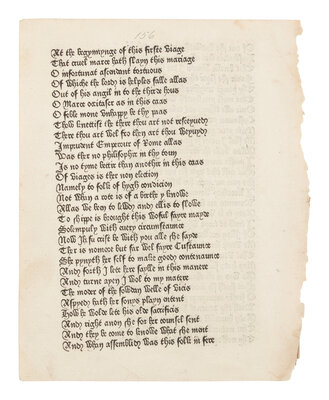 156
At the begynnynge of this firste viage
That cruel marce hath slayn this mariage
O infortunat ascendent tortuous
Of Which the lordy is helples falle allas
Out of his angil in to the thirde hous
O Marce oxitaser as in this caas
O feble mone vnhappy be thy paas
Thow knettist the there thou art not resceyuedy
There thou art Wel fro then art thou Weyuydy
Imprudent Emperour of Rome allas
Was ther no philosophir in thy toun
Is no tyme bettir than another in this caas
Of viages is ther non election
Namely to folk of hygh condicion
Not Whan a rote is of a birthe y knowe
Allas We ben to lewdy and ellis to slowe
To shippe is brought this Woful fayre mayde
Solempnly With euery circumstaunce
Now Ihesu crist be With you alle she sayde
Ther is nomore but far Wel fayre Custaunce
She pyneth her self to make goody contenaunce
Andy forth I lete here saylle in this manere
Andy turne ayen I Wol to my matere
The moder of the sowdan Welle of vicis
Aspyedy hath her sonys playn entent
How he Wolde lete his olde sacrificis
Andy right anon she for her counsel sent
Andy they be come to knowe What she ment
Andy Whan assembledy Was this folk in fere